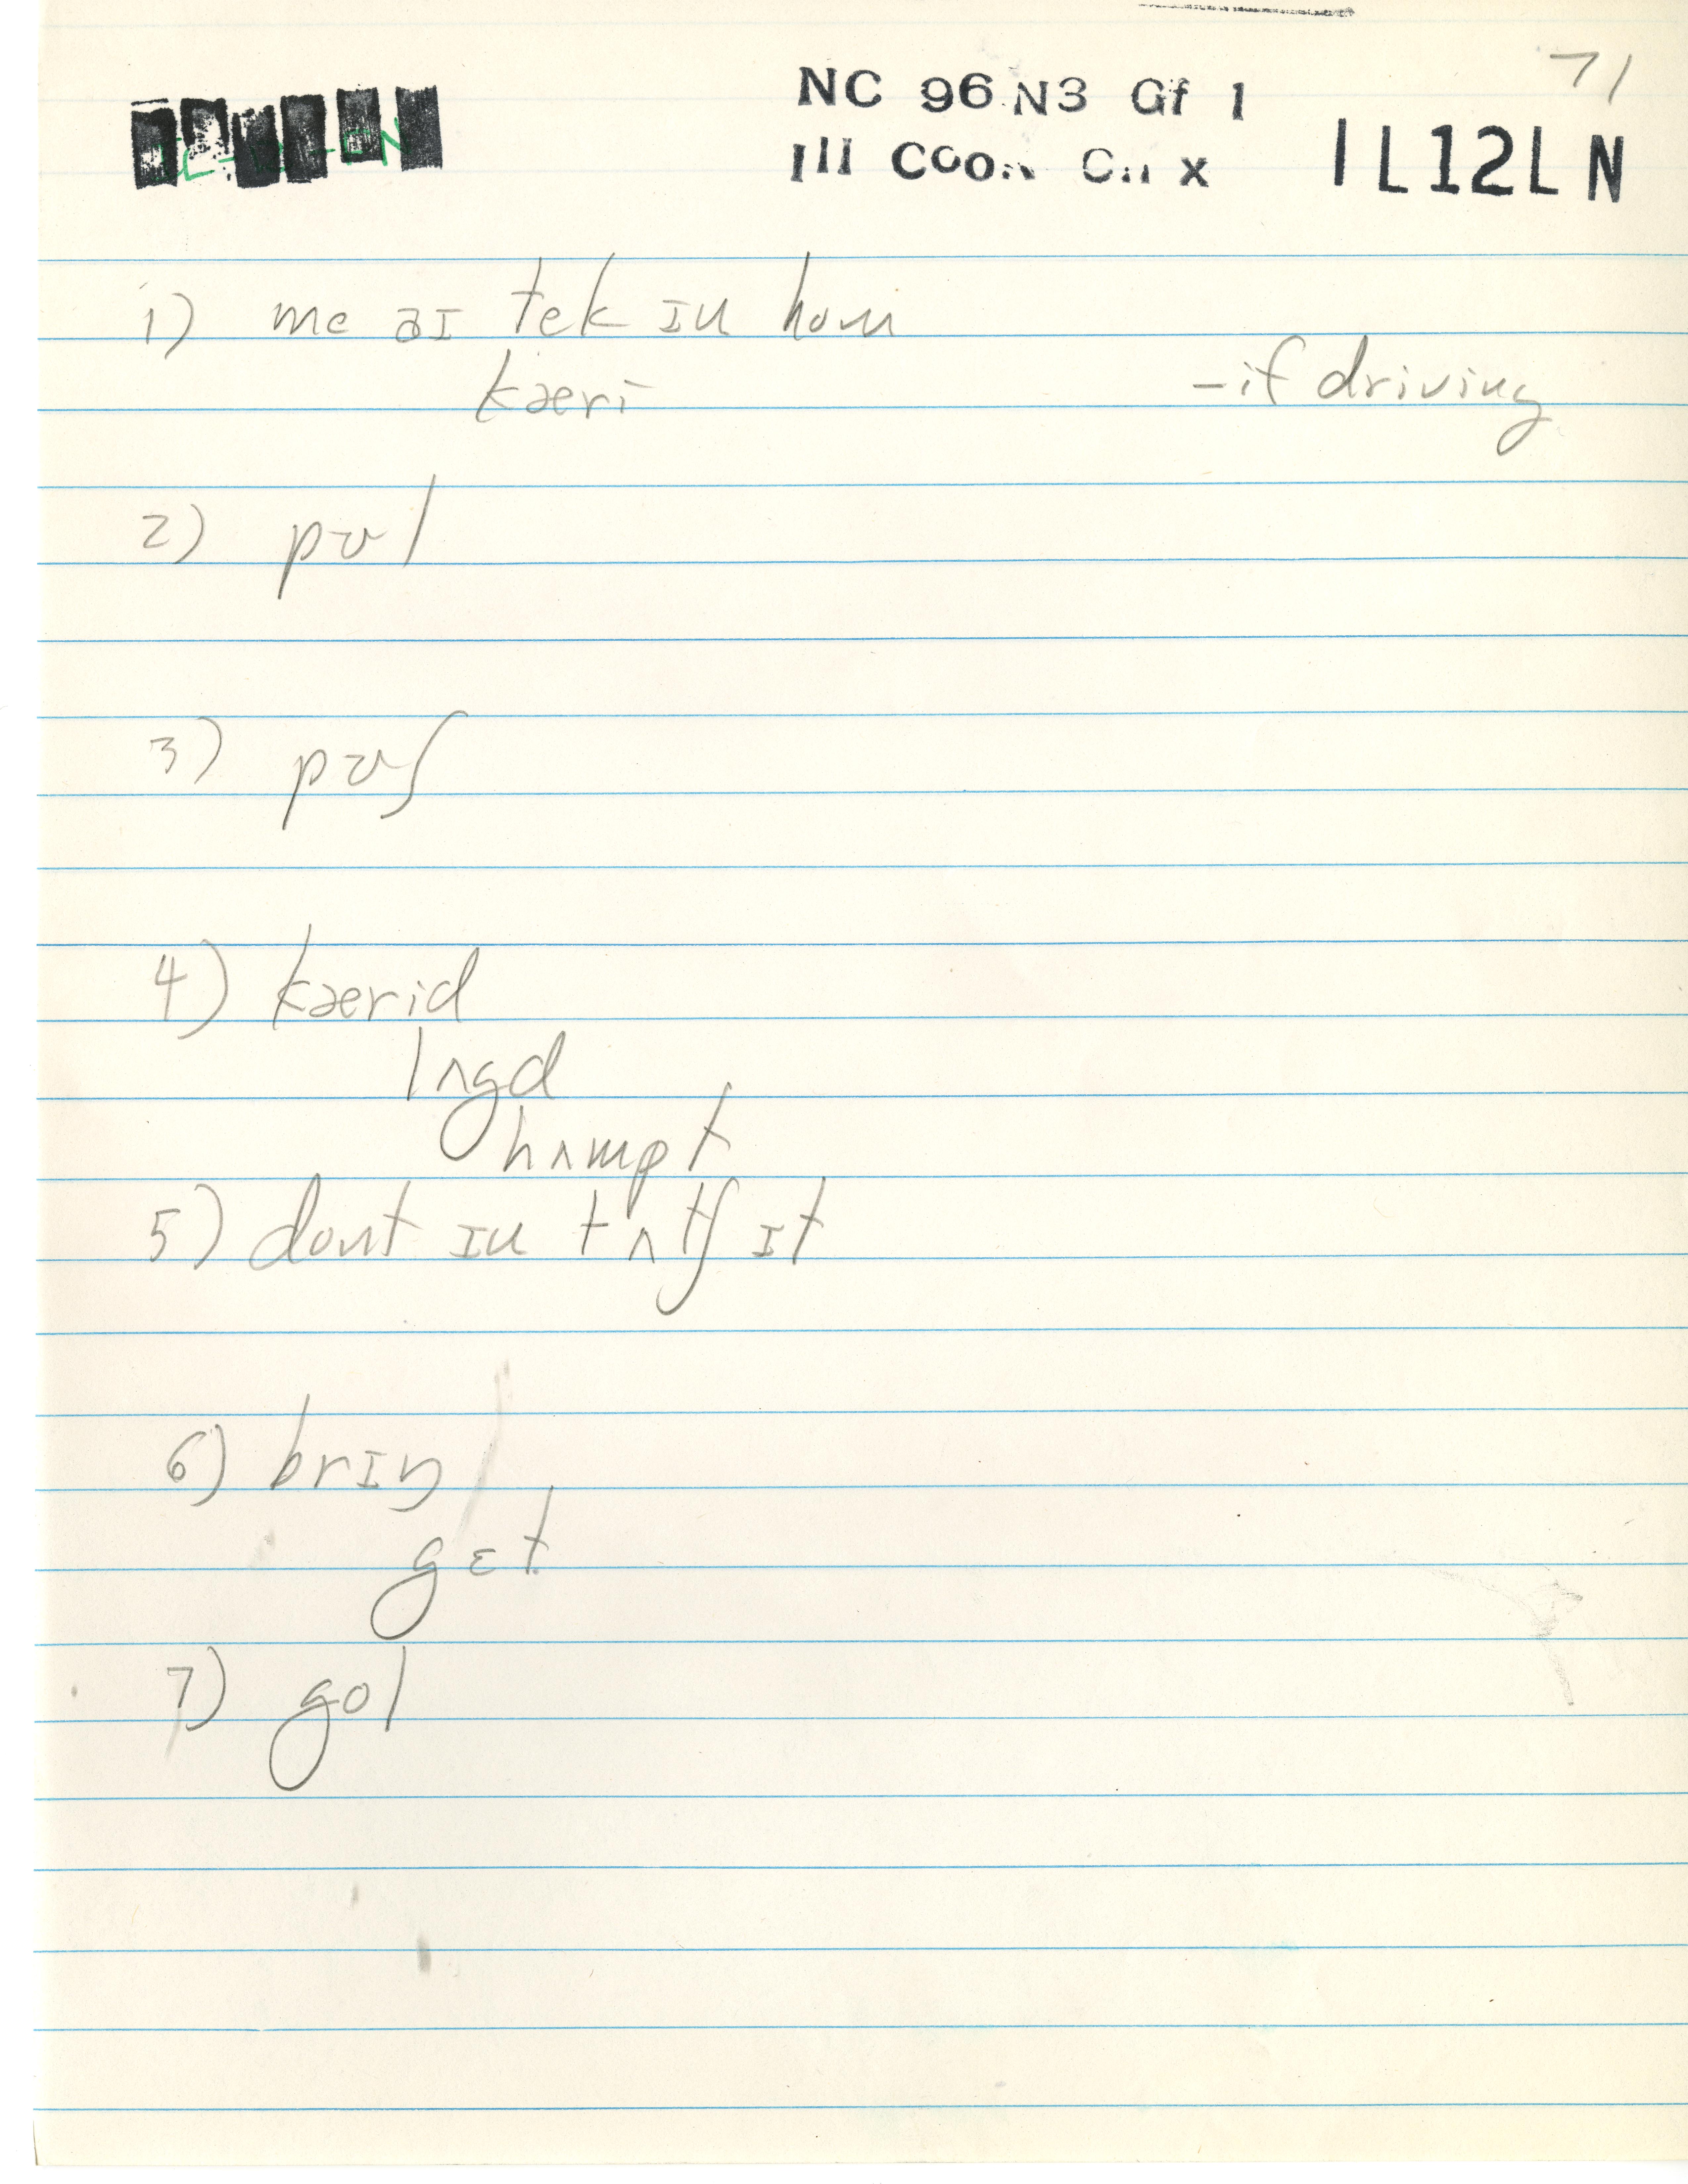 71
NC 96 N3 Gf 1
Ill
1L12LN
1) me aɪ tek ɪu hom
kæri
-if driving
2) pʊl
3) pʊʃ
4) kærid
lʌgd
hʌmpt
5) dont ɪu tʌtʃ ɪt
6) brɪŋ
gɛt
7) gol